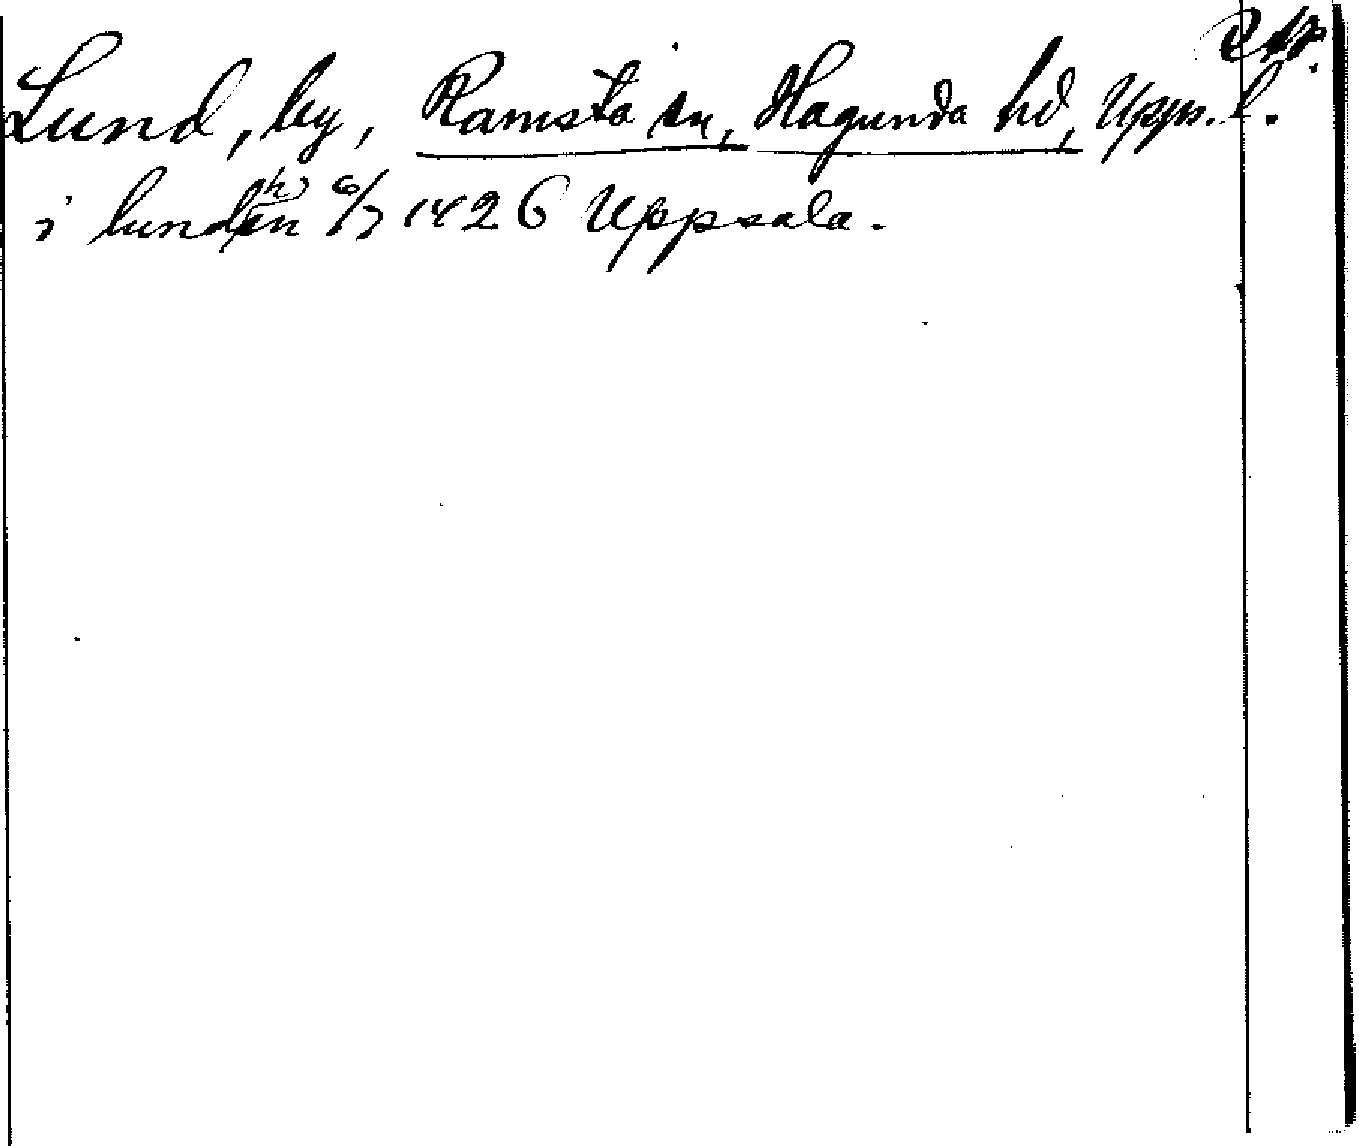 Lund, by, Ramsta sn, Hagunda hd, Upps. l.
i lund(h)en 6/7 1426 Uppsala.